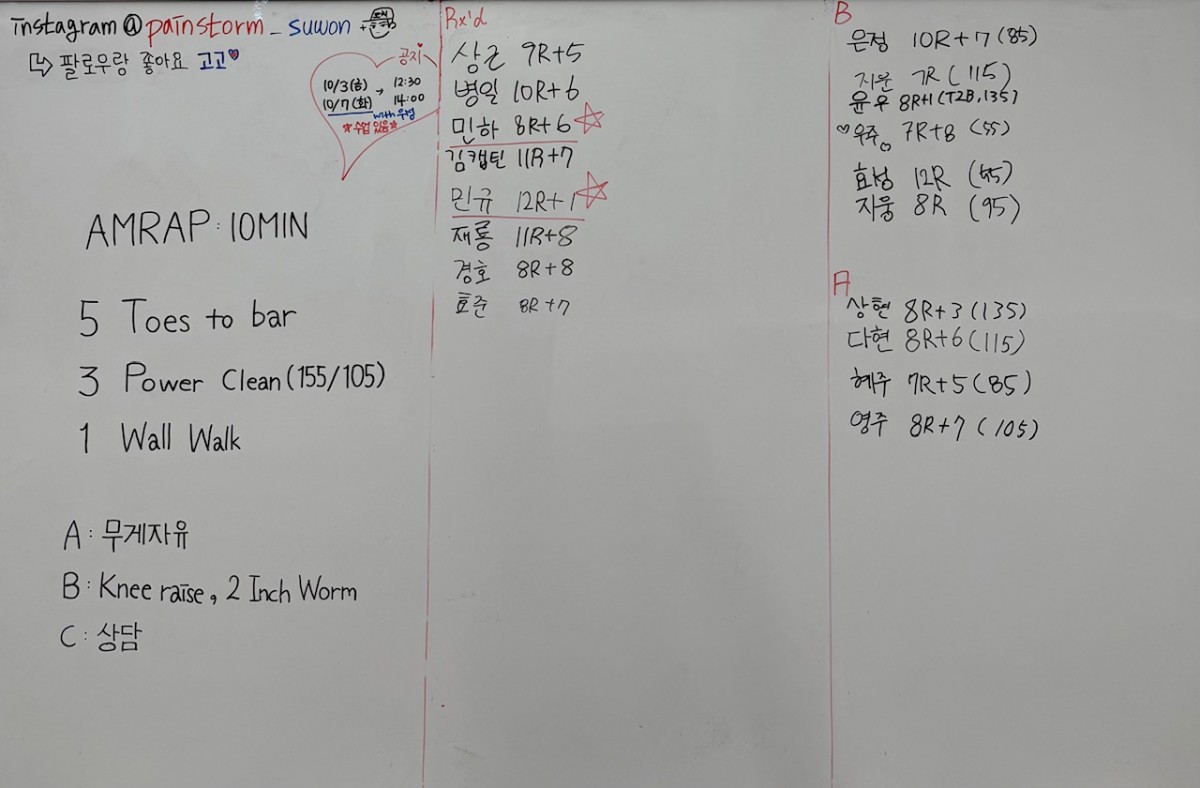 instagram @ painstorm_suwon +
↳ 팔로우랑 좋아요 고고♥
공지♥
10/3(금) → 12:30
10/7(화) 14:00
with 우성
☆수업 있음☆
AMRAP : 10MIN
5 Toes to bar
3 Power Clean (155/105)
1 Wall Walk
A : 무게자유
B : Knee raise, 2 Inch Worm
C : 상담
Rx'd
상근 9R+5
병일 10R+6
민하 8R+6 ☆
김캡틴 11R+7
민규 12R+1 ☆
재룡 11R+8
경호 8R+8
효준 8R+7
B
은정 10R+7 (85)
지운 7R (115)
윤우 8R+1 (T2B, 135)
♡우주 7R+8 (55)
효성 12R
지웅 8R (95)
A
상현 8R+3 (135)
다현 8R+6 (115)
혜주 7R+5 (85)
영주 8R+7 (105)